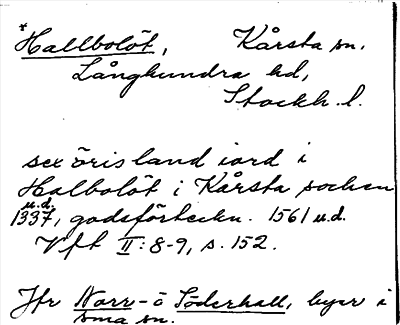 *Hallbolöt, Kårsta sn.
Långhundra hd,
Stockh. l.
sex öris land iord i
Halbolöt i Kårsta sochen
u.d.
1337, godsförteckn. 1561 u.d.
Vft II:8-9, s. 152.
Jfr Norr- o Söderhall, byar i
sma sn.